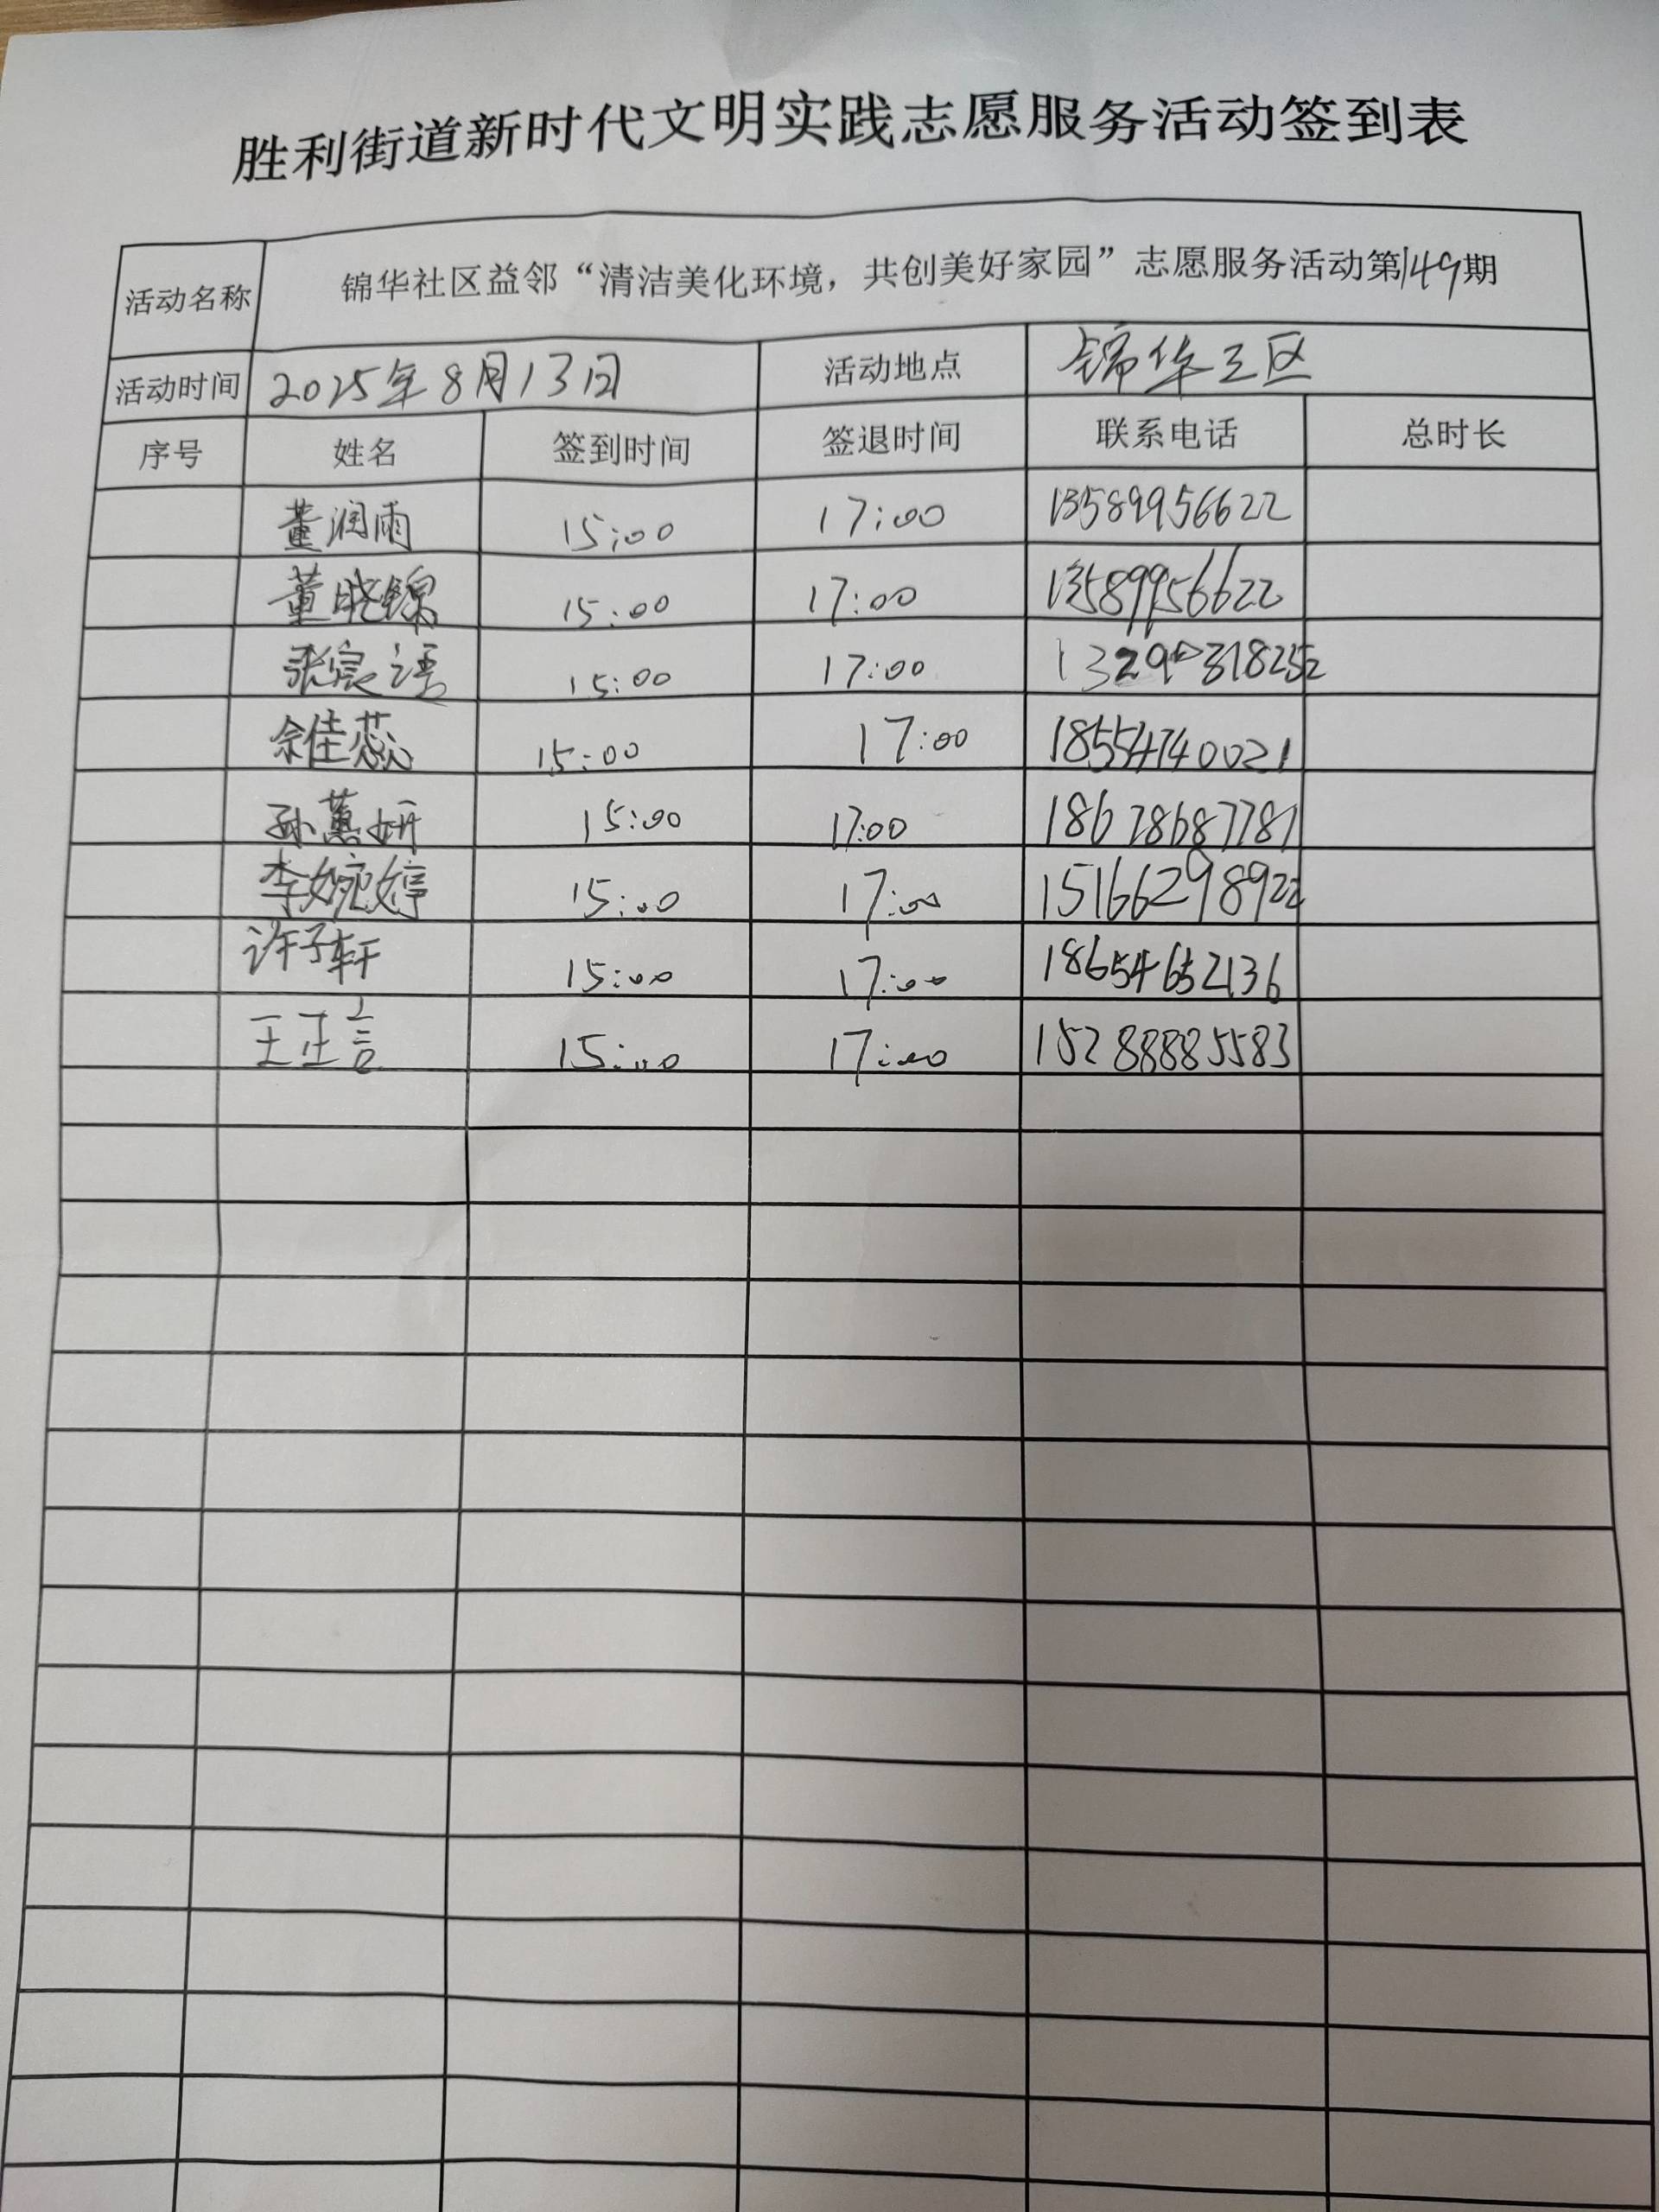 胜利街道新时代文明实践志愿服务活动签到表
活动名称 锦华社区益邻“清洁美化环境，共创美好家园”志愿服务活动第149期
活动时间 2025年8月13日 活动地点 锦华三区
序号 姓名 签到时间 签退时间 联系电话 总时长
董润雨 15:00 17:00 13589956622
董晓锦 15:00 17:00 13589956622
张宸语 15:00 17:00
佳蕊 15:00 17:00 18554740021
孙蕙妍 15:00 17:00 18678687787
李婉婷 15:00 17:00 15166298922
许子轩 15:00 17:00 18654652136
王正言 15:00 17:00 15288885583